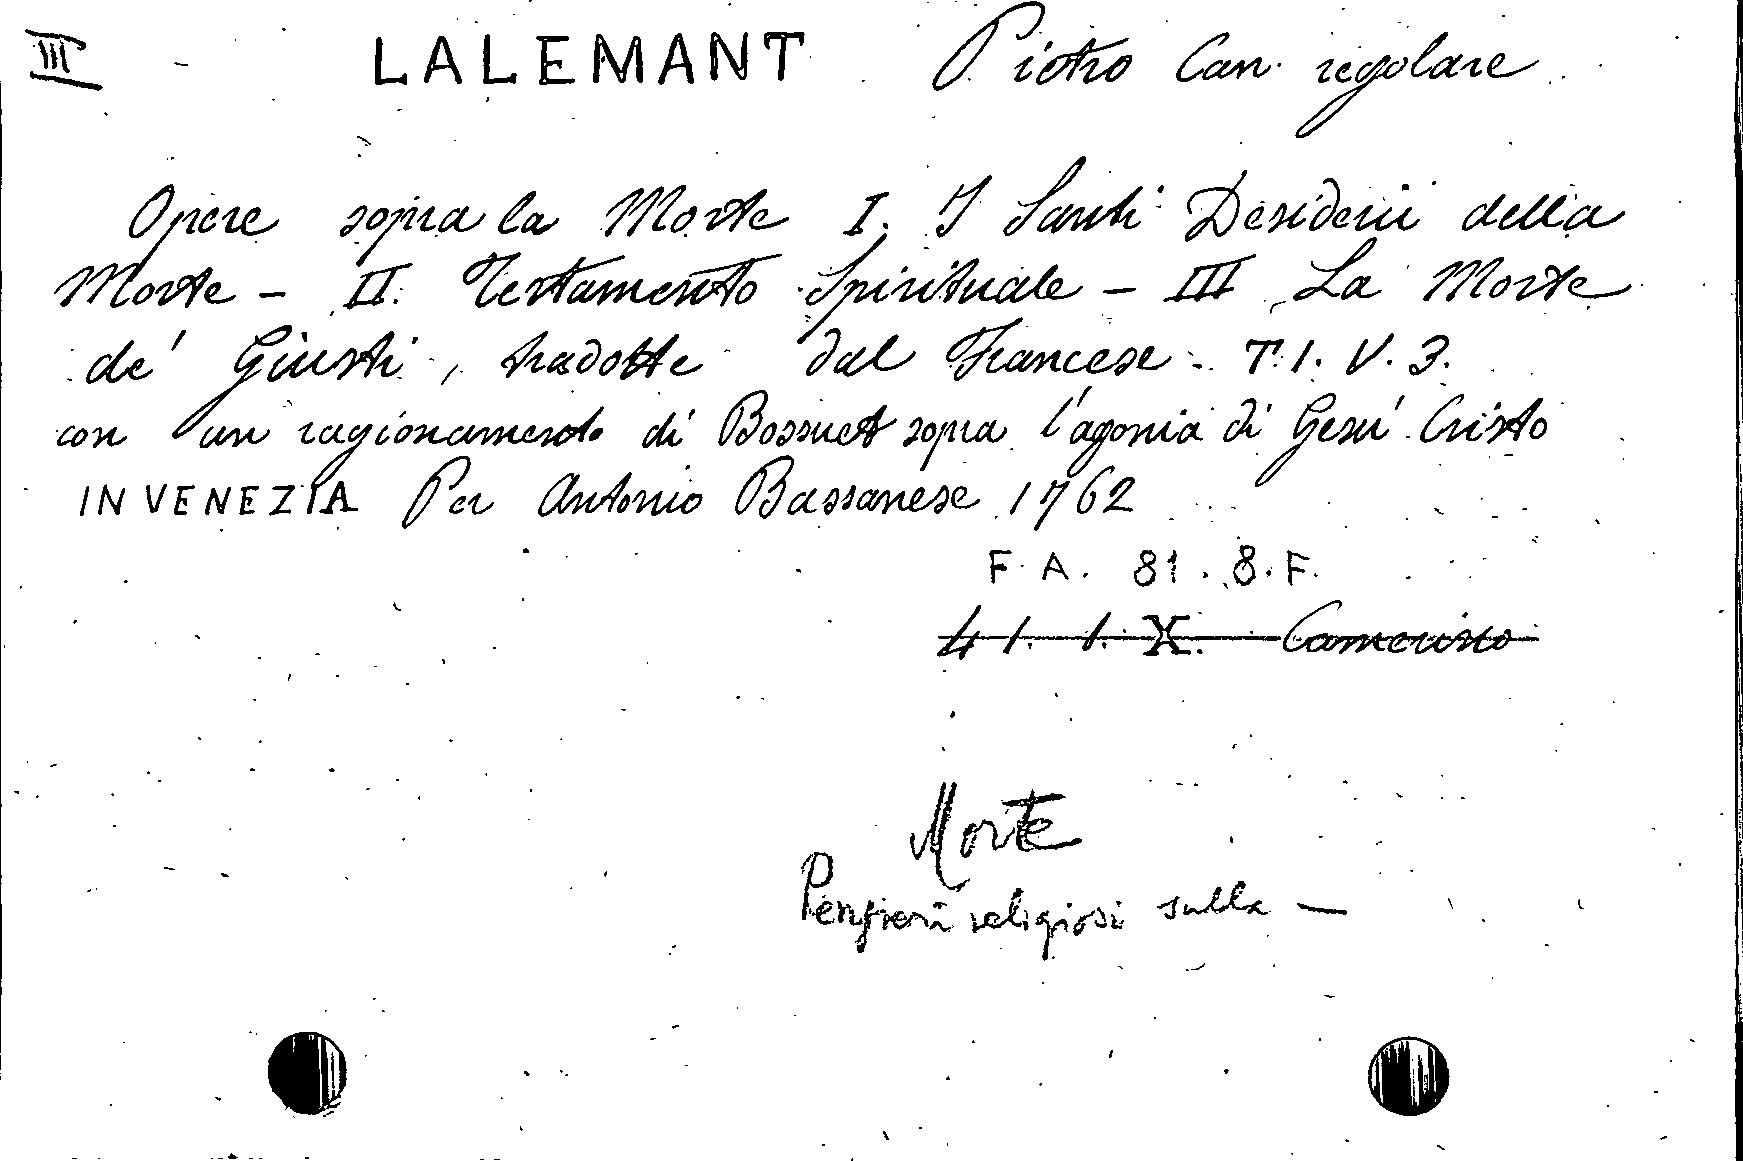 III LALEMANT Pietro Can. regolare
Opere sopra la Morte I. I Santi Desiderii della
Morte - II. Testamento Spirituale - III La Morte
de' Giusti, tradotte dal Francese - T. I. V. 3.
con un ragionamento di Bossuet sopra l'agonia di Gesu' Cristo
IN VENEZIA Per Antonio Bassanese 1762
F. A. 81. 8. F.
41. 1. X. Camerino
Morte
Pensieri religiosi sulla —